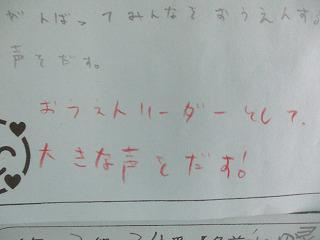 がんばってみんなをおうえんする
声をだす。
おうえんリーダーとして、
大きな声をだす!